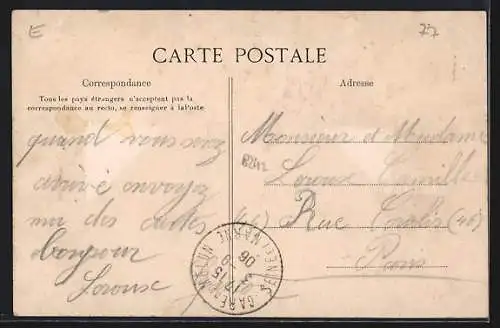 E
77
CARTE POSTALE
Correspondance
Adresse
Tous les pays étrangers n'acceptent pas la
correspondance au recto, se renseigner à la Poste
quand vous
arrivé envoyez
moi des cartes
bonjour
Lorouse
Monsieur et Madame
Lorouse Camille
(46) Rue (46)
Paris
GARE DE MELUN SEINE-ET-MARNE